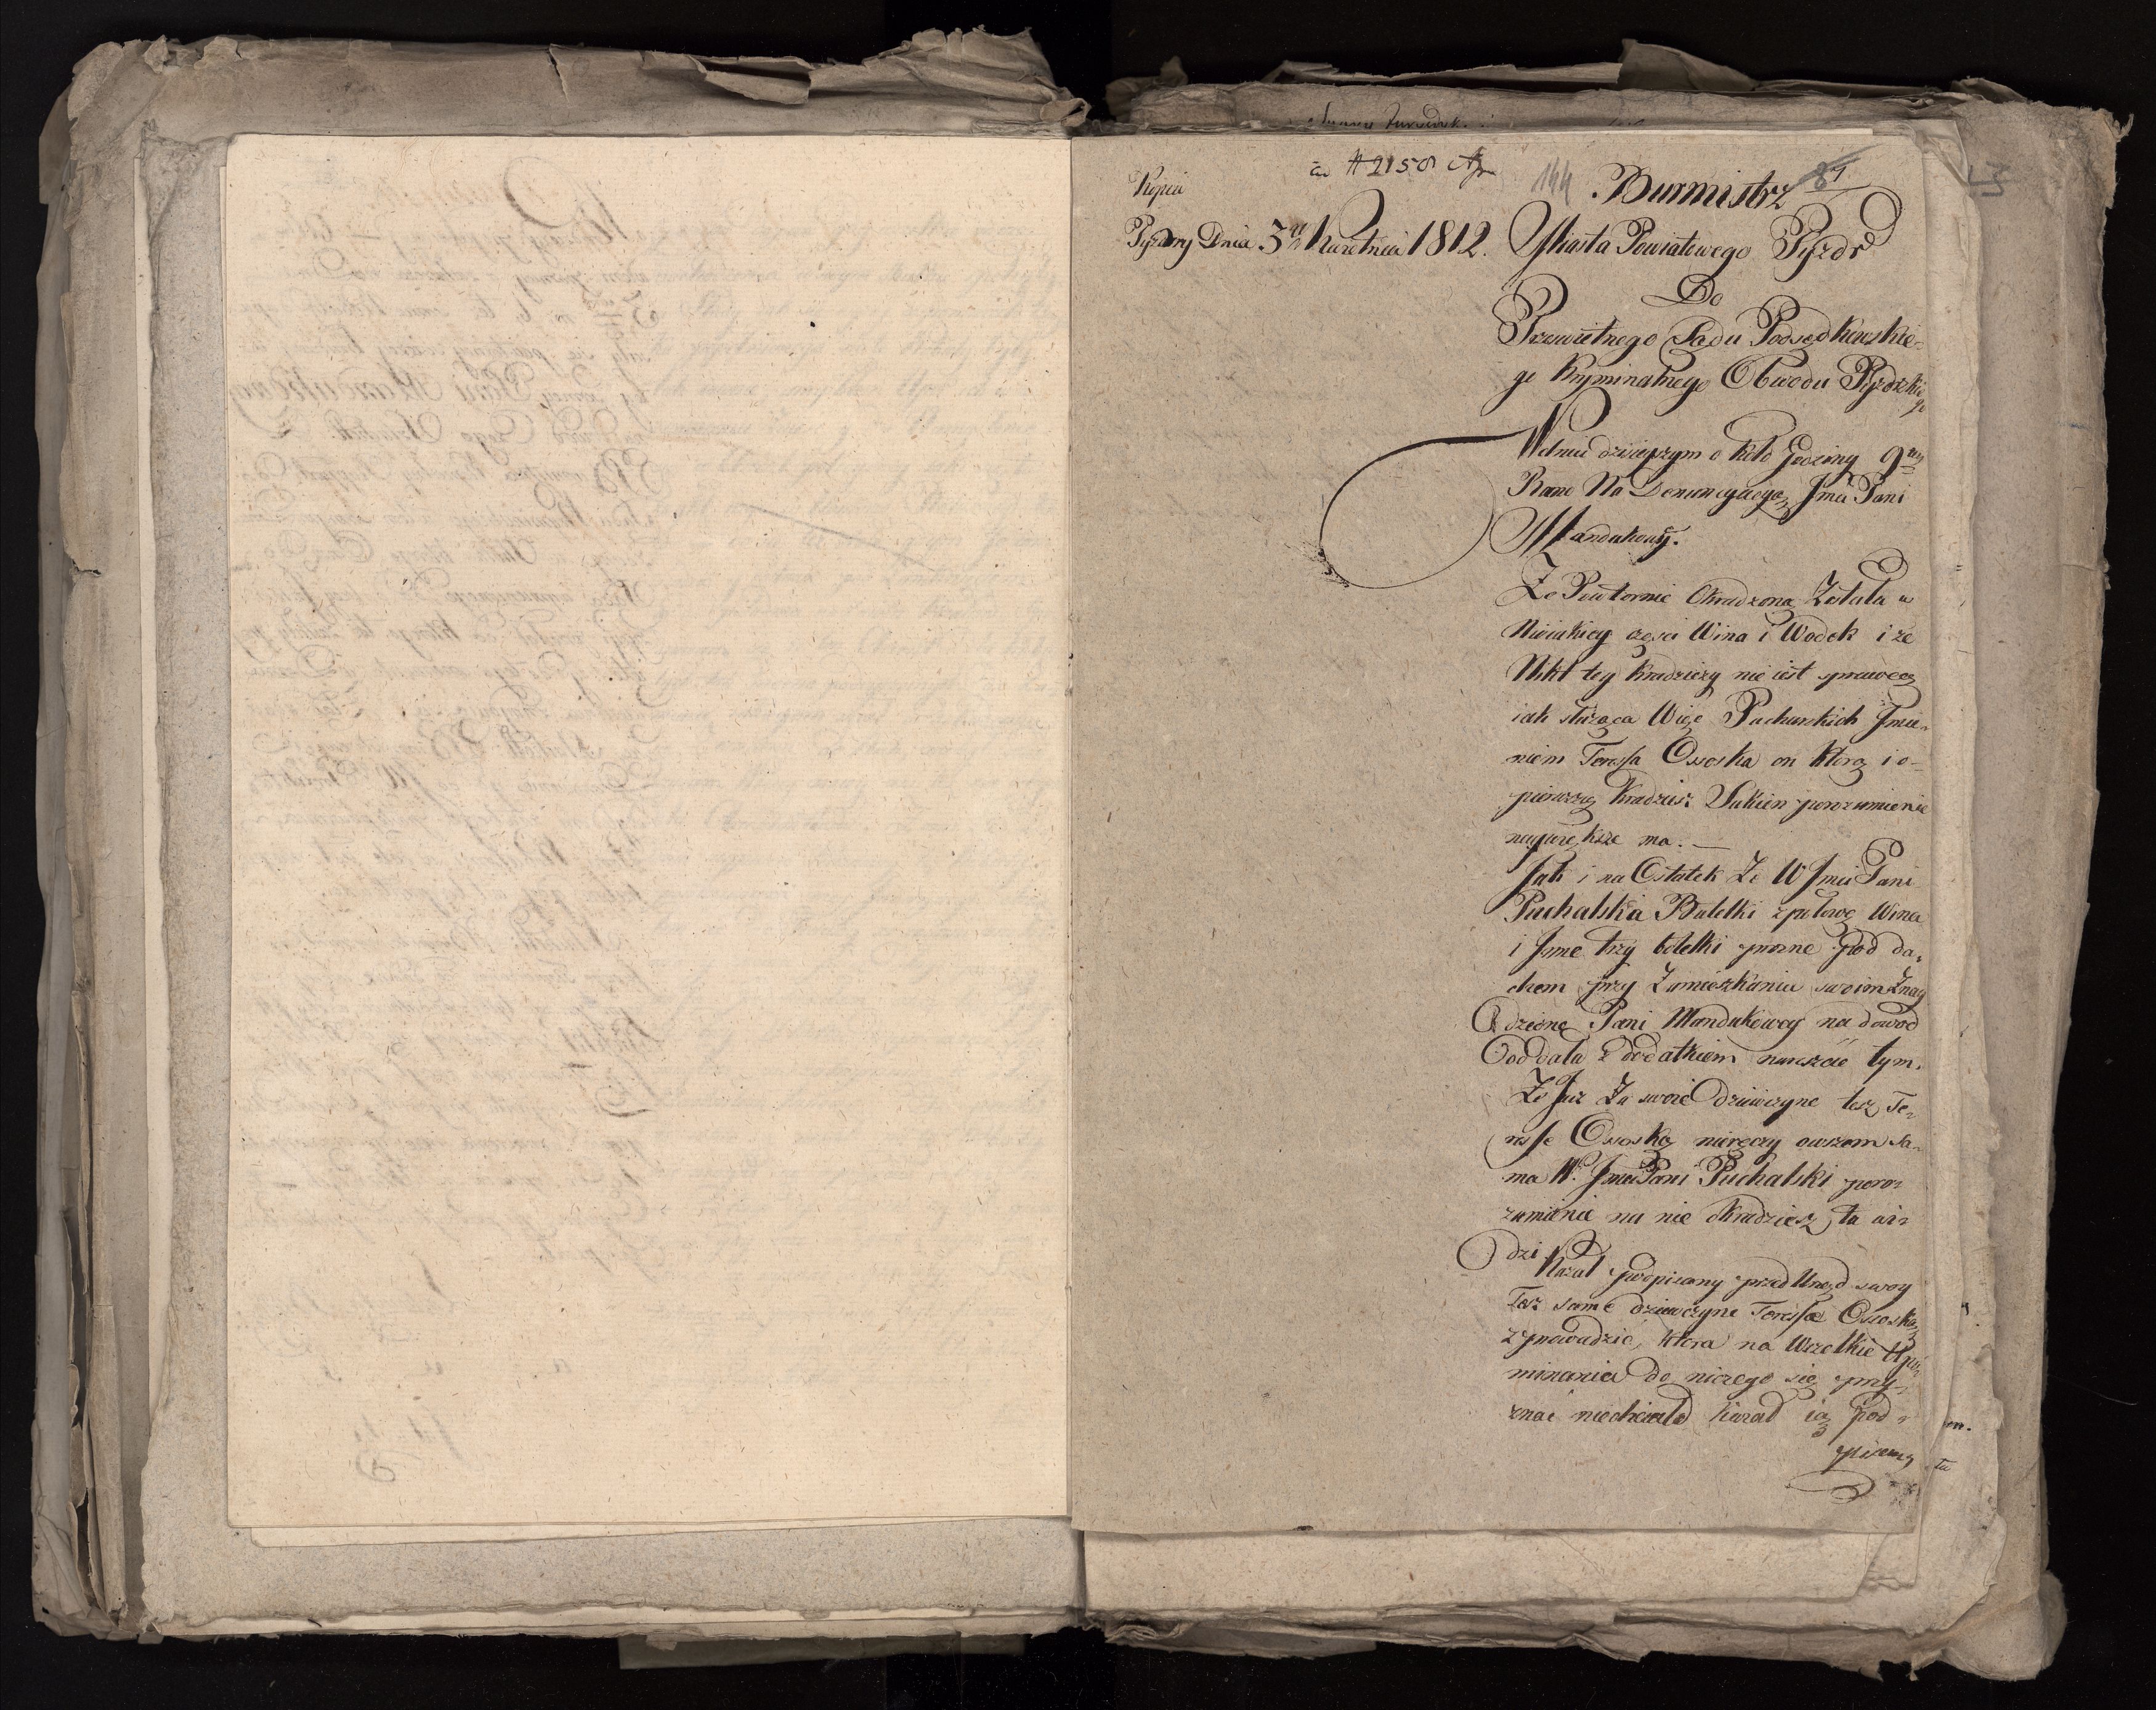 Kopia
ad # 2158 
144
87
Burmistrz
Pyzdry Dnia 3go Kwietnia 1812. Miasta Powiatowego Pyzdr
Do
Prześwietnego Sądu Podsędkowskie-
go Kryminalnego Obwodu Pyzdrskie
go
W dniu dzisieyszym o koło Godziny 9tey
Rano Na Denuncyacyą Jmci Pani
Mandukowy.
Że Powtornie Okradzoną Została w
Nieiakiey częsci Wina i Wodek i że
Nikt tey kradzieży nie iest sprawcą
iak służąca Wże Puchalskich Jmie-
niem Teressa Ossoska on którą i o-
pierwszą kradzież Sukien porozumienie
naywiększe ma. —
Jak i na Ostatek Że W Jmci Pani
Puchalska Butelki z połową Wina
i Jnne trzy butelki prozne pod da-
chem przy Zamieszkaniu swoim Znay
dzione Pani Mandukowey na dowod
Oddała z dodatkiem nareszcie tym.
Że Juz Za swoie dziewczyne tesz Te-
resse Ossoską nieręczy owszem sa-
ma W. Jmci Pani Puchalski poro-
zumienie na nie okradziesz ta wi-
dzi.
Kazał podpisany przed Urząd swoy
Tesz same dziewczyne Teresse Ossoską
zprowadzic, która na Wszelkie Upo-
minania do niczego się przy-
znać niechciała kazał ią pod-
pisany